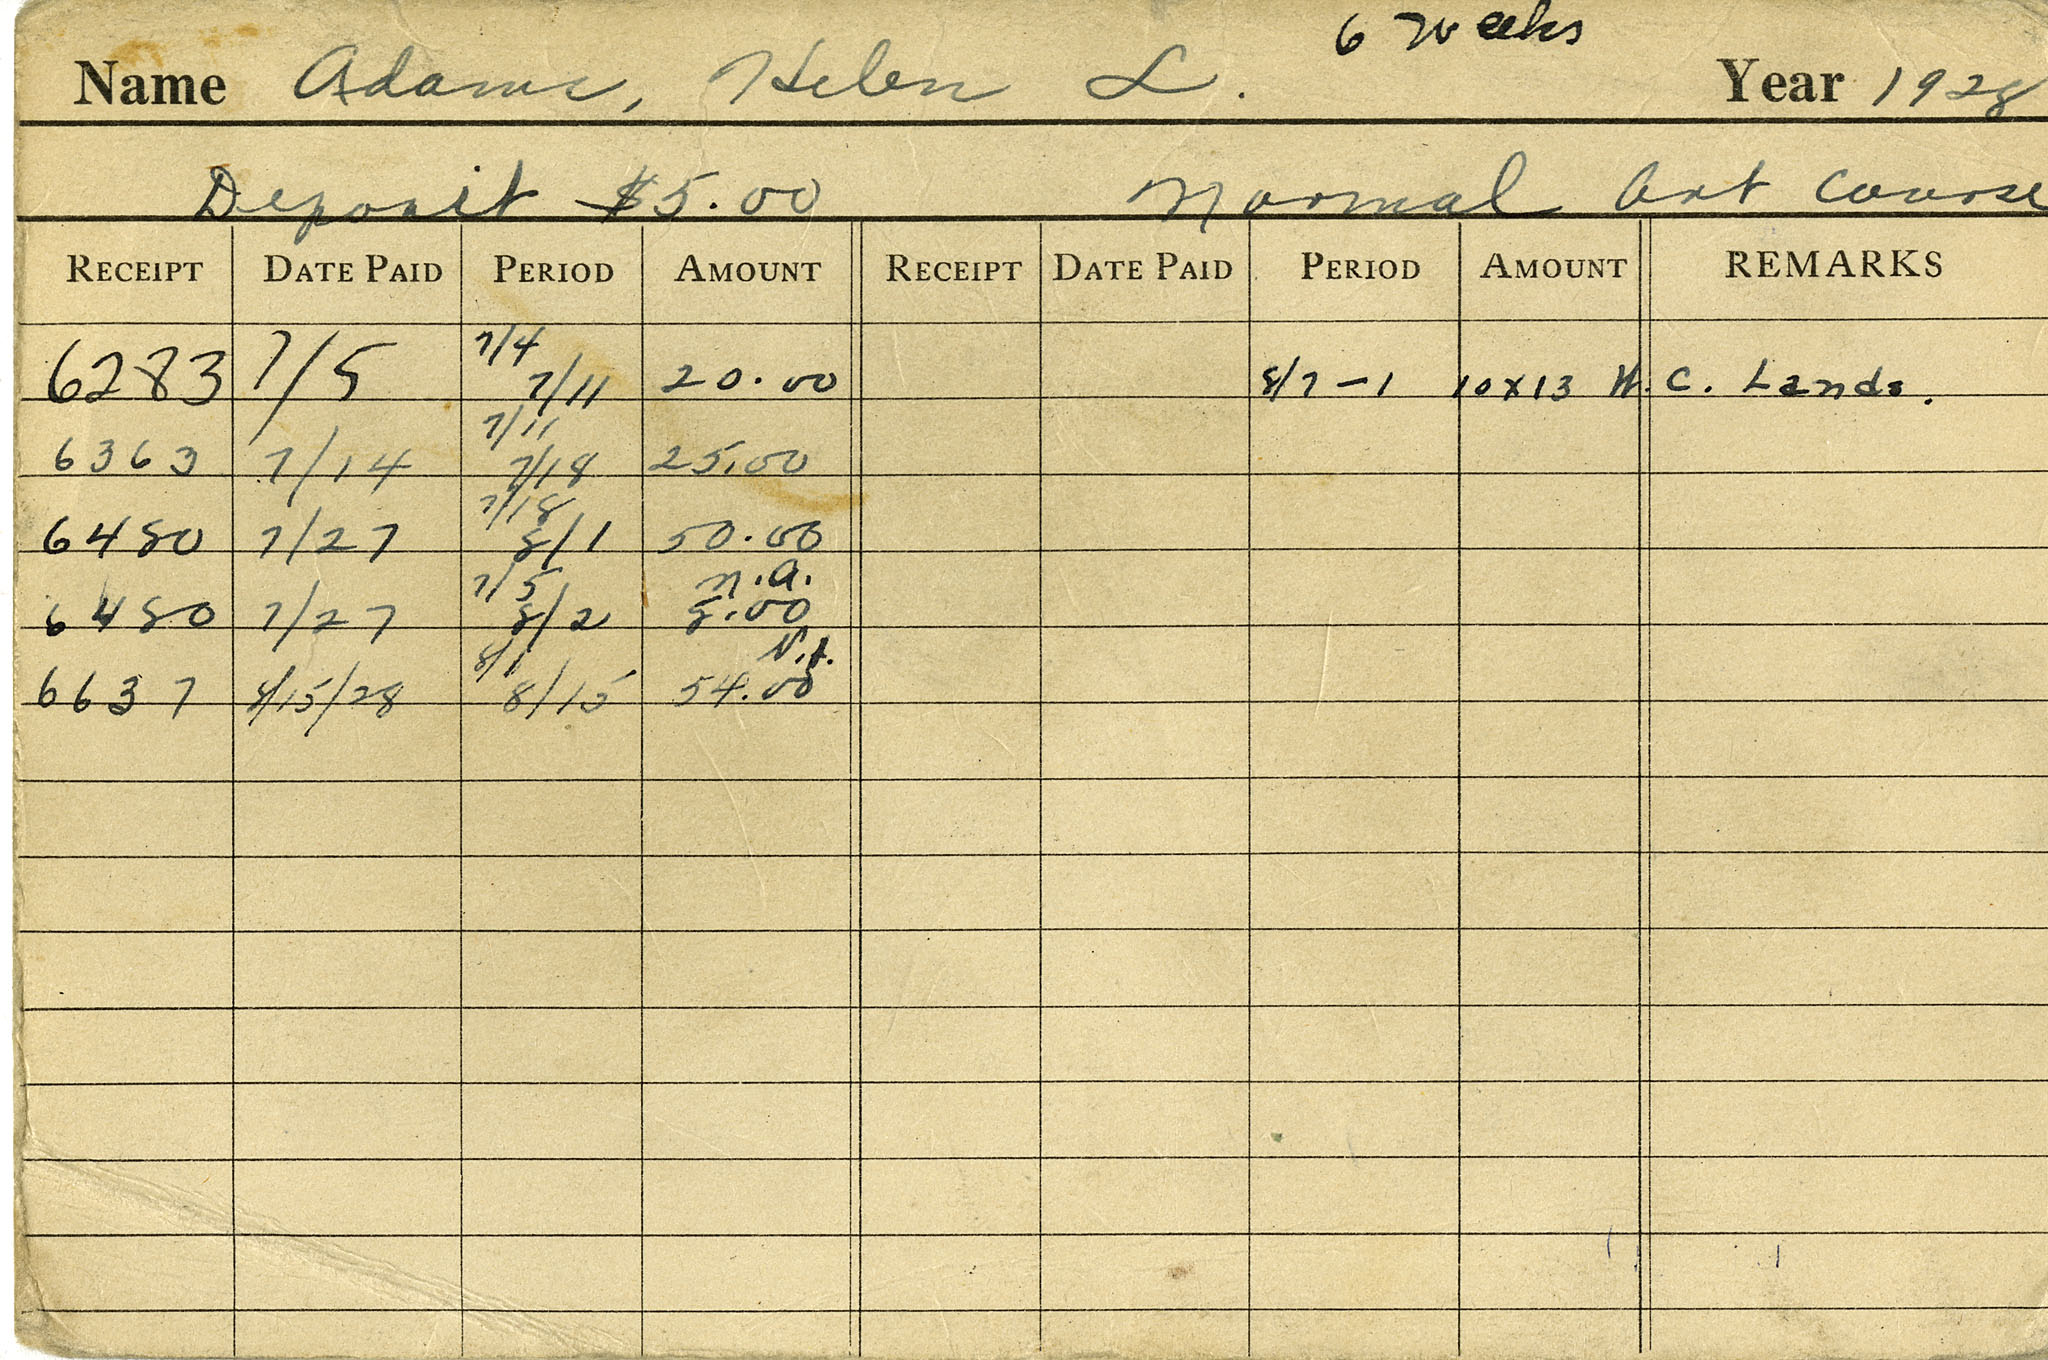 6 weeks
Name Adams, Helen L. Year 1928
Deposit $5.00 Normal Art Course
RECEIPT DATE PAID PERIOD AMOUNT RECEIPT DATE PAID PERIOD AMOUNT REMARKS
7/4
6283 7/5 7/11 20.00 8/7-1 10x13 W.C. Lands.
7/11
6363 7/14 7/18 25.00
7/18
6480 7/27 8/1 50.00
7/5 n.a.
6480 7/27 8/2 8.00
8/1
6637 8/15/28 8/15 54.00